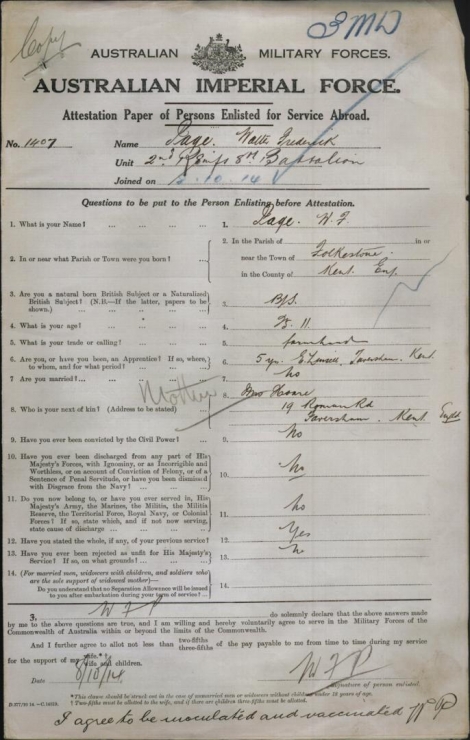 Copy
3 M D
AUSTRALIAN MILITARY FORCES.
AUSTRALIAN IMPERIAL FORCE.
Attestation Paper of Persons Enlisted for Service Abroad.
No. 1407 Name Page. Walter Frederick
Unit 2nd Reinfs 8th Battalion
Joined on 5-10-14
Questions to be put to the Person Enlisting before Attestation.
1. What is your Name? ... ... ... 1. Page. W. F.
2. In or near what Parish or Town were you born? ... 2. In the Parish of Folkestone in or
near the Town of
in the County of Kent. Eng.
3. Are you a natural born British Subject or a Naturalized
British Subject? (N.B.—If the latter, papers to be
shown.) ... ... ... 3. B/S.
4. What is your age? ... ... ... 4. 11
5. What is your trade or calling? ... ... 5. farmhand
6. Are you, or have you been, an Apprentice? If so, where,
to whom, and for what period? ... ... 6. 5 yrs. Faversham. Kent
7. Are you married? ... ... ... 7. No
Mother
8. Who is your next of kin? (Address to be stated) 8. Mrs Hoare
19 Roman Rd
Faversham. Kent Engld
9. Have you ever been convicted by the Civil Power? ... 9. No
10. Have you ever been discharged from any part of His
Majesty's Forces, with Ignominy, or as Incorrigible and
Worthless, or on account of Conviction of Felony, or of a
Sentence of Penal Servitude, or have you been dismissed
with Disgrace from the Navy? ... ... 10. No
11. Do you now belong to, or have you ever served in, His
Majesty's Army, the Marines, the Militia, the Militia
Reserve, the Territorial Force, Royal Navy, or Colonial
Forces? If so, state which, and if not now serving,
state cause of discharge ... ... 11. No
12. Have you stated the whole, if any, of your previous service? 12. Yes
13. Have you ever been rejected as unfit for His Majesty's
Service? If so, on what grounds? ... ... 13. N
14. (For married men, widowers with children, and soldiers who
are the sole support of widowed mother)—
Do you understand that no Separation Allowance will be issued
to you after embarkation during your term of service? ... 14.
I, W F P do solemnly declare that the above answers made
by me to the above questions are true, and I am willing and hereby voluntarily agree to serve in the Military Forces of the
Commonwealth of Australia within or beyond the limits of the Commonwealth.
And I further agree to allot not less than two-fifths three-fifths of the pay payable to me from time to time during my service
for the support of my wife.* wife and children.
Date 8/10/14 W F P
Signature of person enlisted.
*This clause should be struck out in the case of unmarried men or widowers without children under 18 years of age.
† Two-fifths must be allotted to the wife, and if there are children three-fifths must be allotted.
I agree to be inoculated and vaccinated